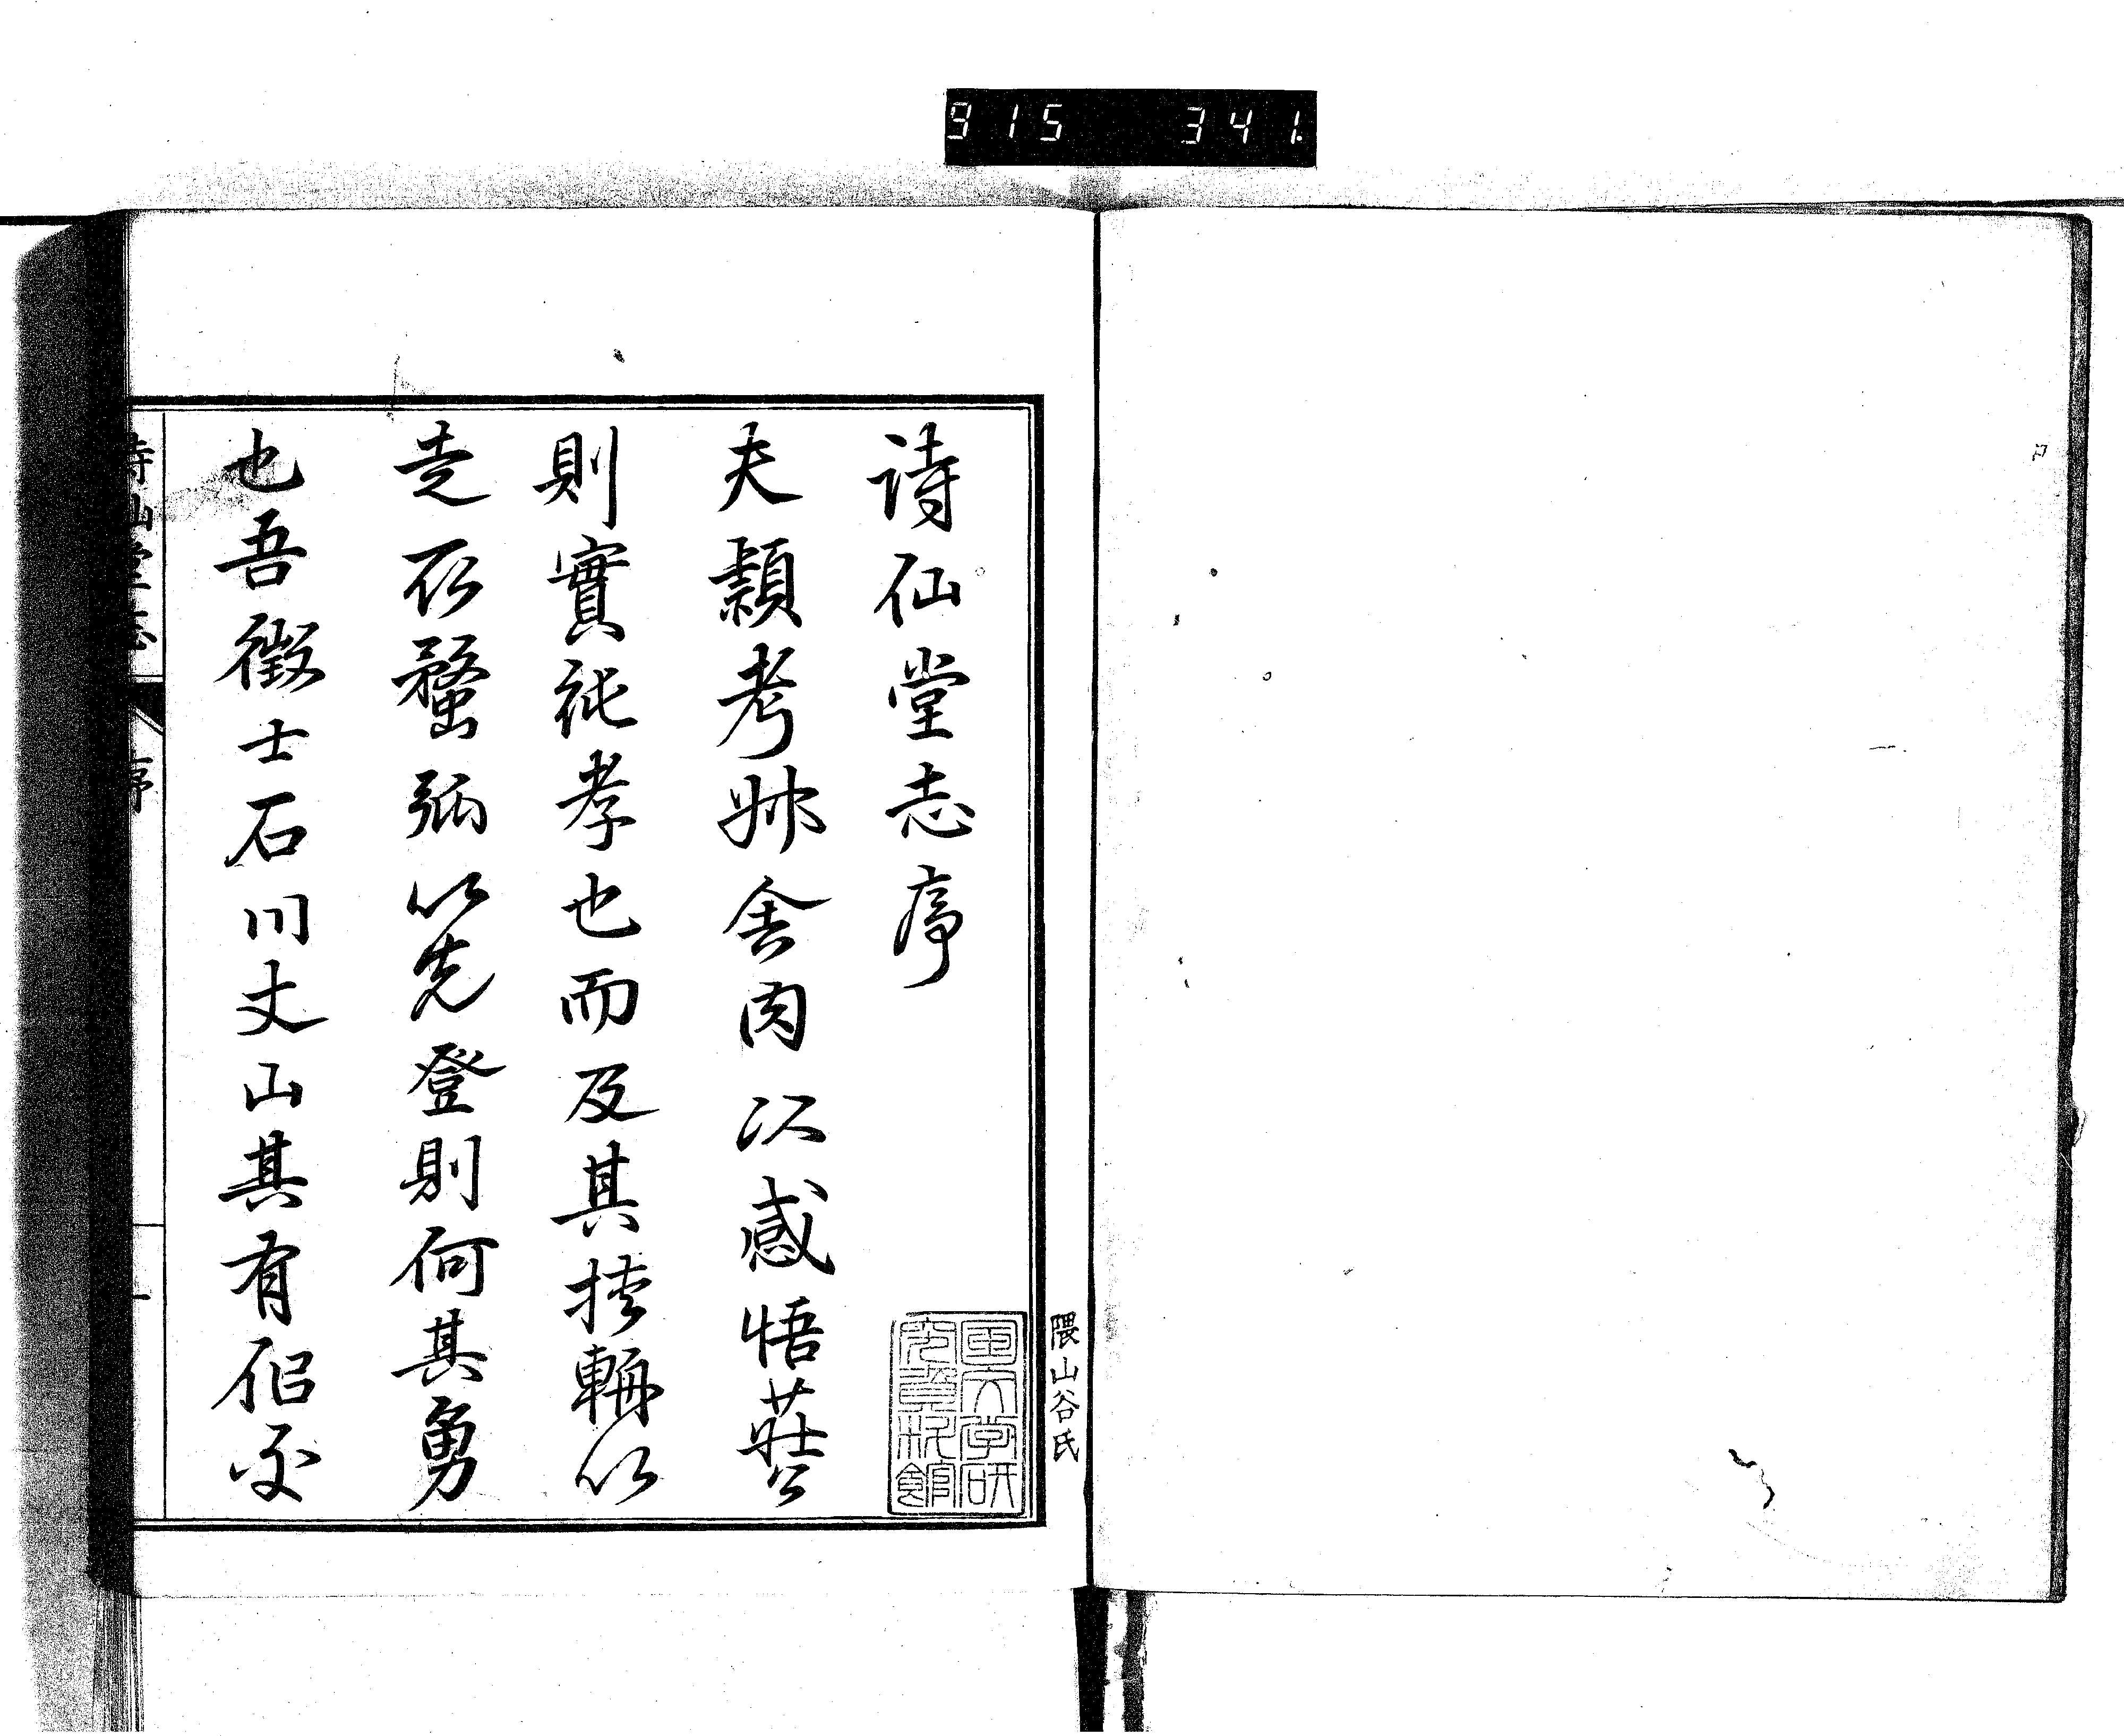 915 341
隈山谷氏
詩仙堂志序
夫頴考叔舍肉以感悟莊公
則實純孝也而及其挾輈以
走取蝥弧以先登則何其勇
也吾徴士石川丈山其有似
詩仙堂志 序 一
国文学研究資料館